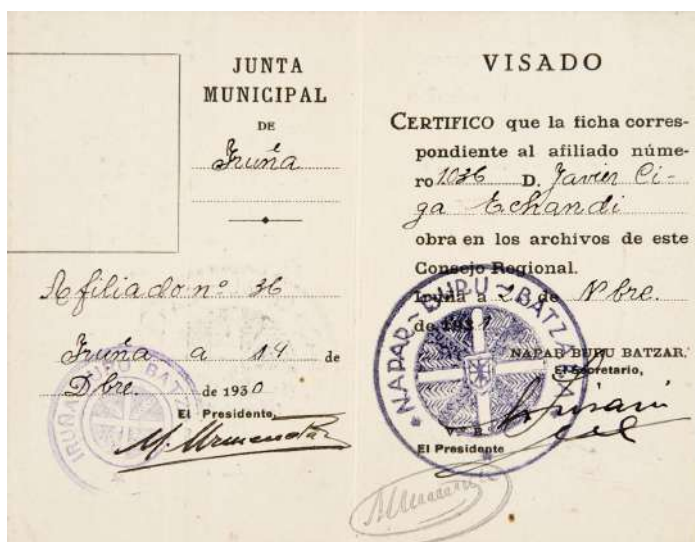 JUNTA
MUNICIPAL
DE
Iruña
Afiliado nº 36
Iruña a 14 de
Dbre. de 1930
El Presidente,
IRUÑA BURU BATZAR
VISADO
CERTIFICO que la ficha corres-
pondiente al afiliado núme-
ro 1036 D. Javier Ci-
ga Echandi
obra en los archivos de este
Consejo Regional.
Iruña a 2 de Nbre.
de 1931
NAPAR BURU BATZAR.
El Secretario,
Vº B.
El Presidente
NAPAR-BURU-BATZAR